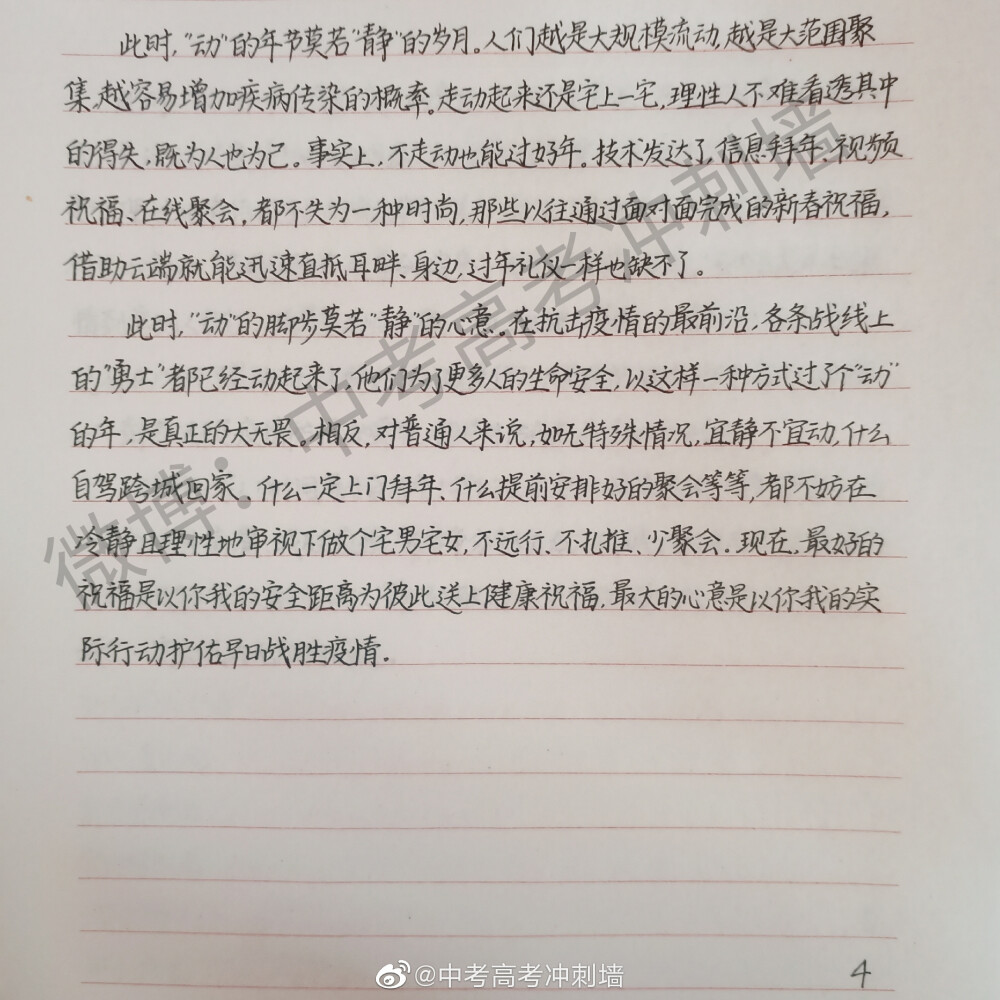 此时,"动"的年节莫若"静"的岁月。人们越是大规模流动,越是大范围聚
集,越容易增加疾病传染的概率。走动起来还是宅上一宅,理性人不难看透其中
的得失,既为人也为己。事实上,不走动也能过好年。技术发达了,信息拜年、视频
祝福、在线聚会,都不失为一种时尚,那些以往通过面对面完成的新春祝福,
借助云端就能迅速直抵耳畔、身边,过年礼仪一样也缺不了。
此时,"动"的脚步莫若"静"的心意。在抗击疫情的最前沿,各条战线上
的"勇士"都已经动起来了,他们为了更多人的生命安全,以这样一种方式过了个"动"
的年,是真正的大无畏。相反,对普通人来说,如无特殊情况,宜静不宜动,什么
自驾跨城回家、什么一定上门拜年、什么提前安排好的聚会等等,都不妨在
冷静且理性地审视下做个宅男宅女,不远行、不扎推、少聚会。现在,最好的
祝福是以你我的安全距离为彼此送上健康祝福,最大的心意是以你我的实
际行动护佑早日战胜疫情.
微博:中考高考冲刺墙
@中考高考冲刺墙
4